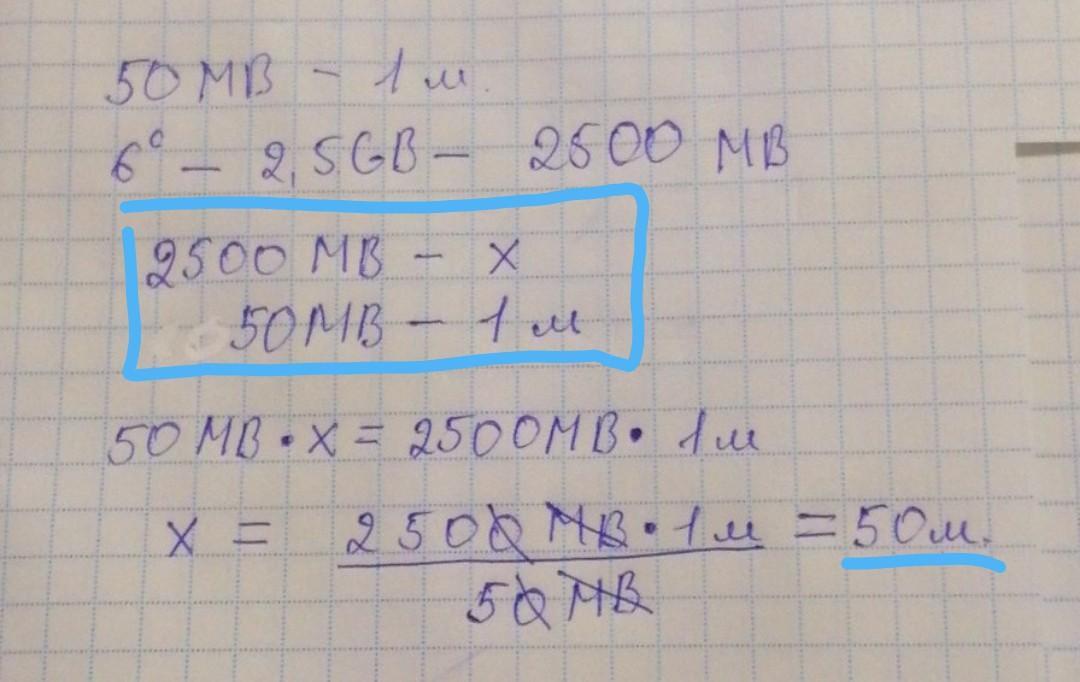 50 MB - 1 м.
6° - 2,5 GB - 2500 MB
2500 MB - x
50 MB - 1 м
50 MB · x = 2500 MB · 1 м
x = 2500 MB · 1 м / 50 MB = 50 м.